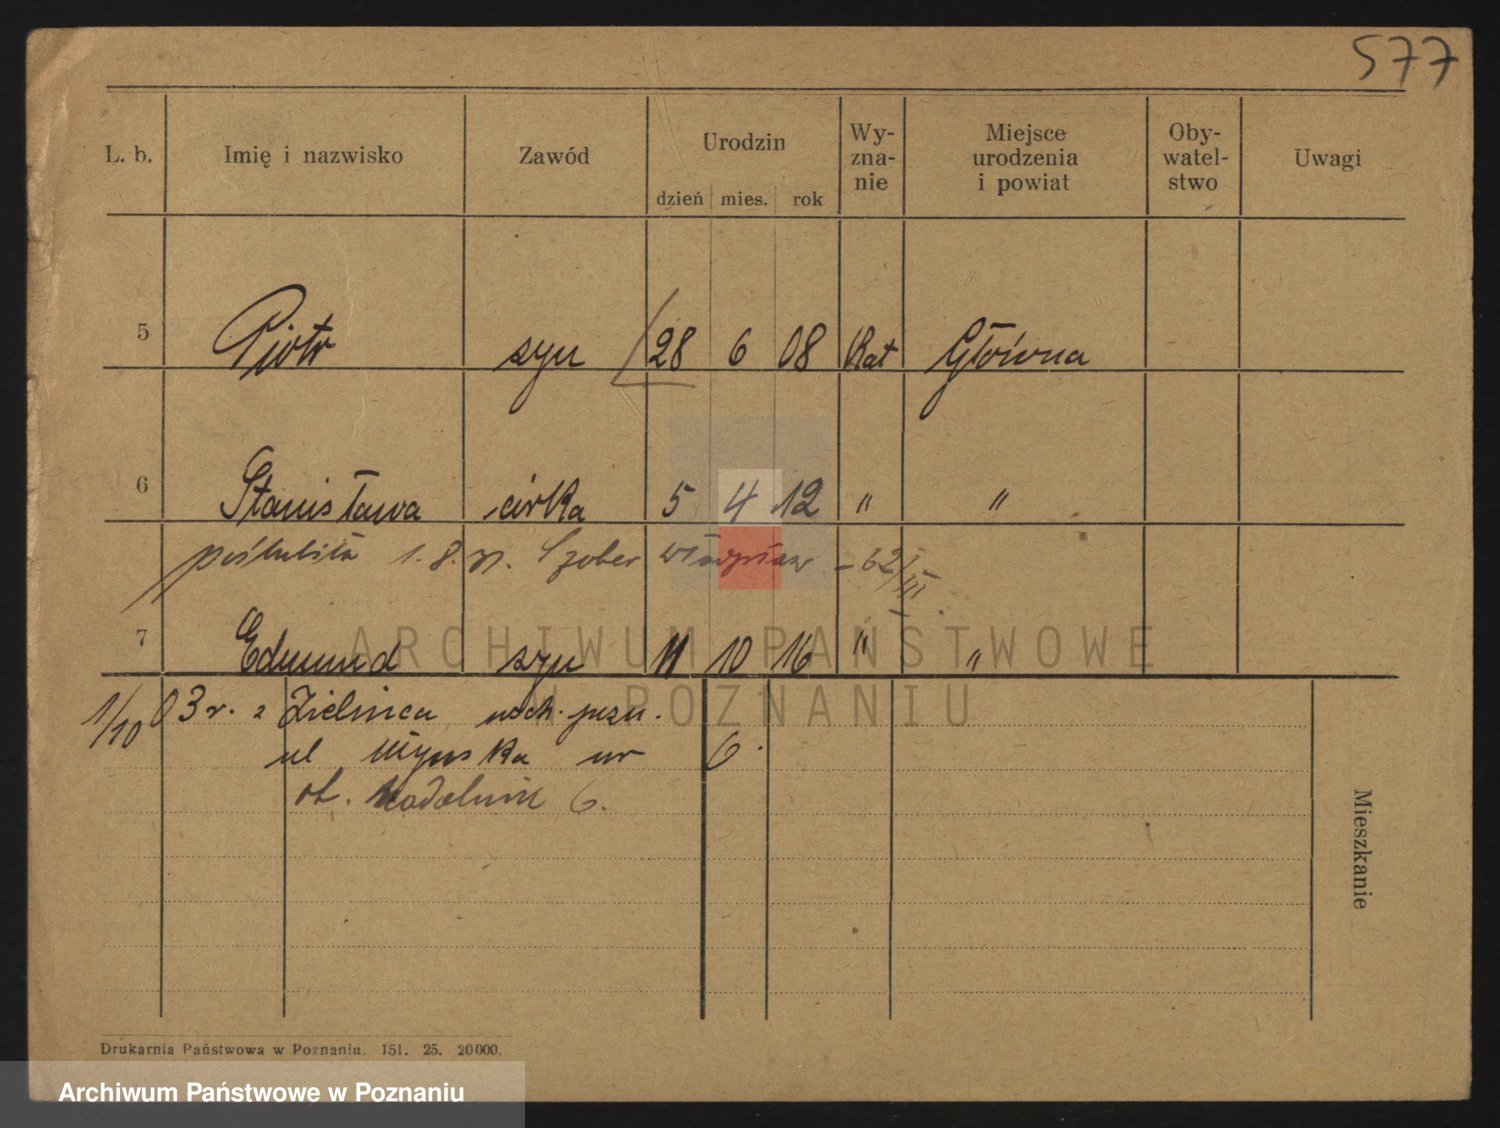 577
L. b. Imię i nazwisko Zawód Urodzin dzień mies. rok Wy-zna-nie Miejsce urodzenia i powiat Oby-watel-stwo Uwagi
5 Piotr syn 28 6 08 Kat Główna
6 Stanisława córka 5 4 12 " "
poślubiła 1.8. Szober Władysław - 62/III
7 Edmund syn 11 10 16 " "
1/10 03 r. z Zielińca
ul nr 6.
6.
Mieszkanie
Drukarnia Państwowa w Poznaniu. 151. 25. 20000.
ARCHIWUM PAŃSTWOWE
W POZNANIU
Archiwum Państwowe w Poznaniu